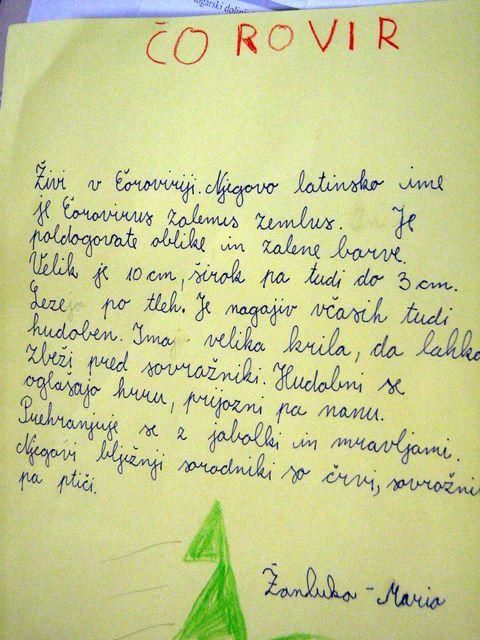 ogarski dolini
ČOROVIR
Živi v Čoroviriji. Njegovo latinsko ime
je Čorovirus zalemus zemlus. Je
poldogovate oblike in zalene barve.
Velik je 10 cm, širok pa tudi do 3 cm.
Leze po tleh. Je nagajiv včasih tudi
hudoben. Ima velika krila, da lahko
zbeži pred sovražniki. Hudobni se
oglašajo hrru, prijazni pa nanu.
Prehranjuje se z jabolki in mravljami.
Njegovi bližnji sorodniki so črvi, sovražni
pa ptiči.
Žanluka-Maria